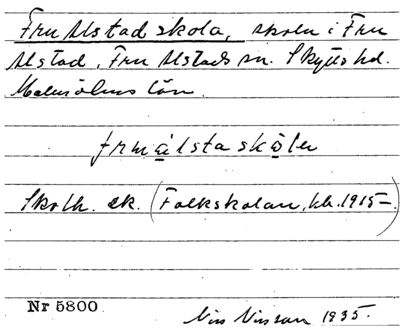 Fru Alstad skola, skolan i Fru
Alstad, Fru Alstads sn. Skytts hd.
Malmöhus län.
frmälsta skåla
Skolh. ek. (Folkskolan, kb. 1915–.)
Nr 5800
Nils Nilsson 1935.